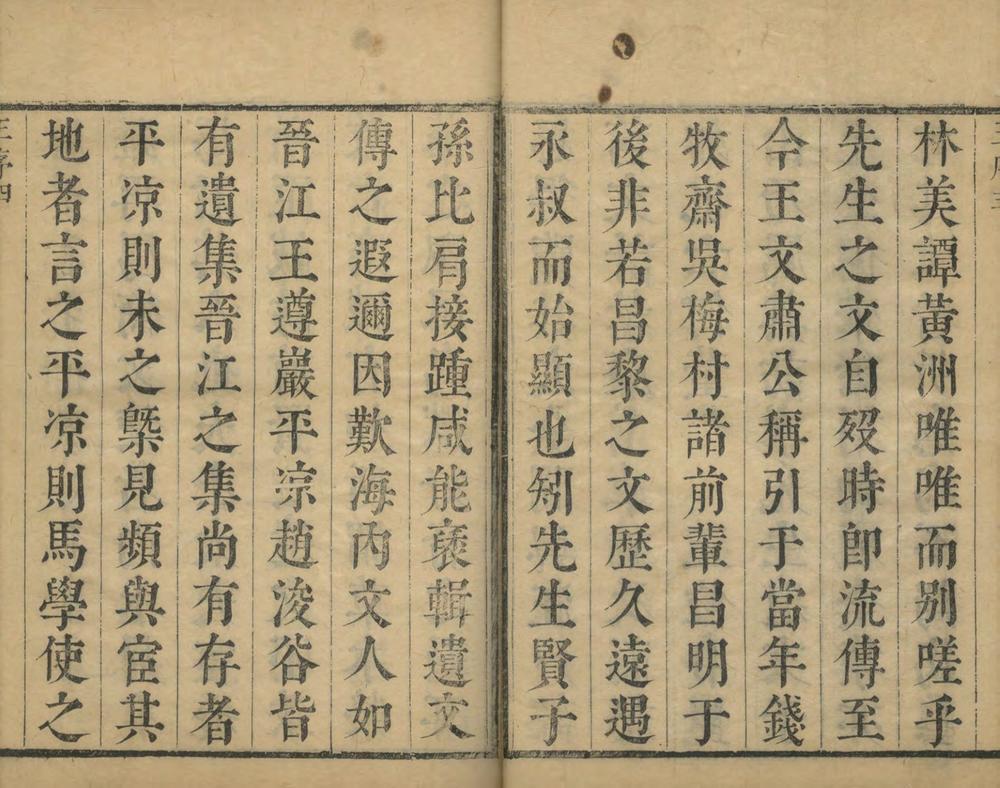 林美譚黃洲唯唯而別嗟乎
先生之文自歿時卽流傳至
今王文肅公稱引于當年錢
牧齋吳梅村諸前輩昌明于
後非若昌黎之文歷久遠遇
永叔而始顯也矧先生賢子
孫比肩接踵咸能裒輯遺文
傳之遐邇因歎海內文人如
晉江王遵巖平凉趙浚谷皆
有遺集晉江之集尚有存者
平凉則未之槩見頻與宦其
地者言之平凉則馬學使之
王序四